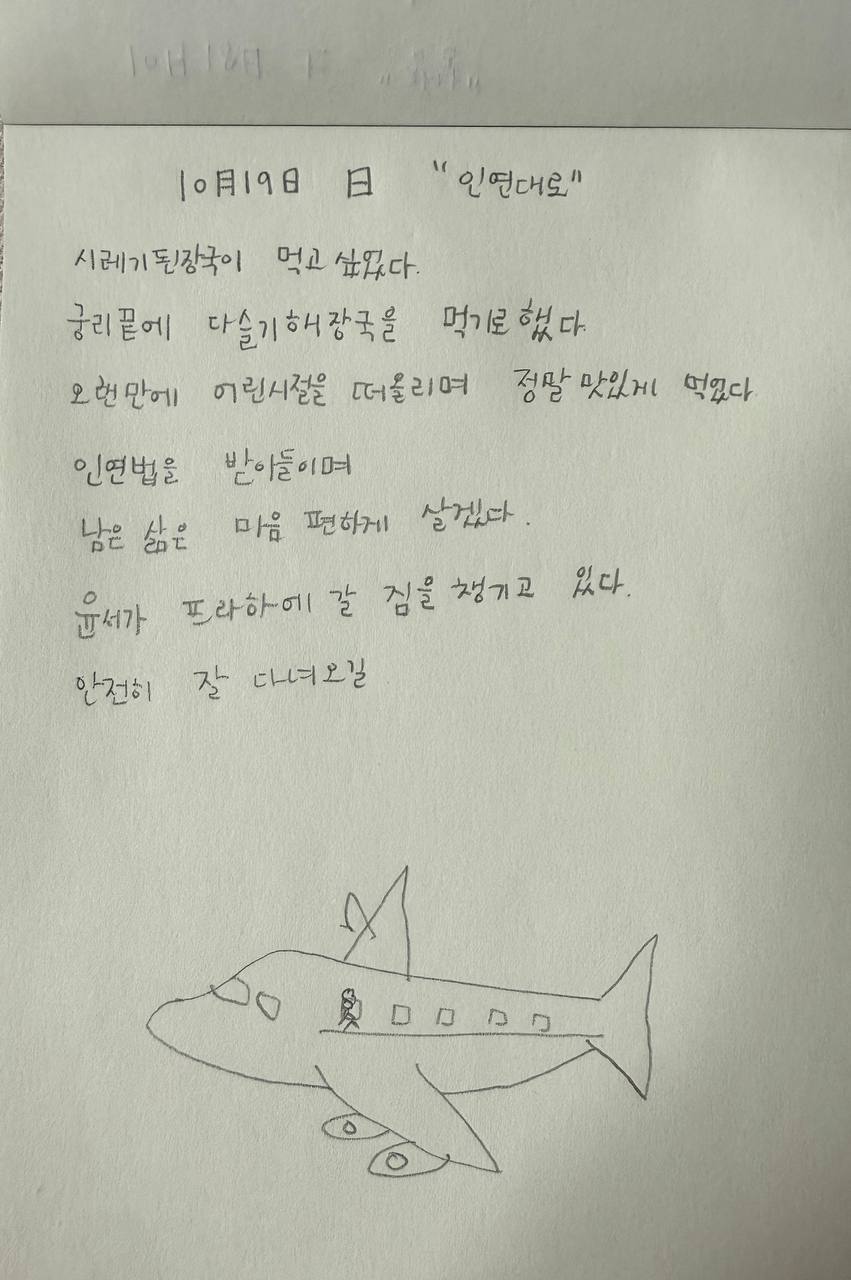 10月19日 日 "인연대로"
시레기된장국이 먹고 싶었다.
궁리끝에 다슬기해장국을 먹기로 했다.
오랜만에 어린시절을 떠올리며 정말 맛있게 먹었다
인연법을 받아들이며
남은 삶은 마음 편하게 살겠다.
윤서가 프라하에 갈 짐을 챙기고 있다.
안전히 잘 다녀오길